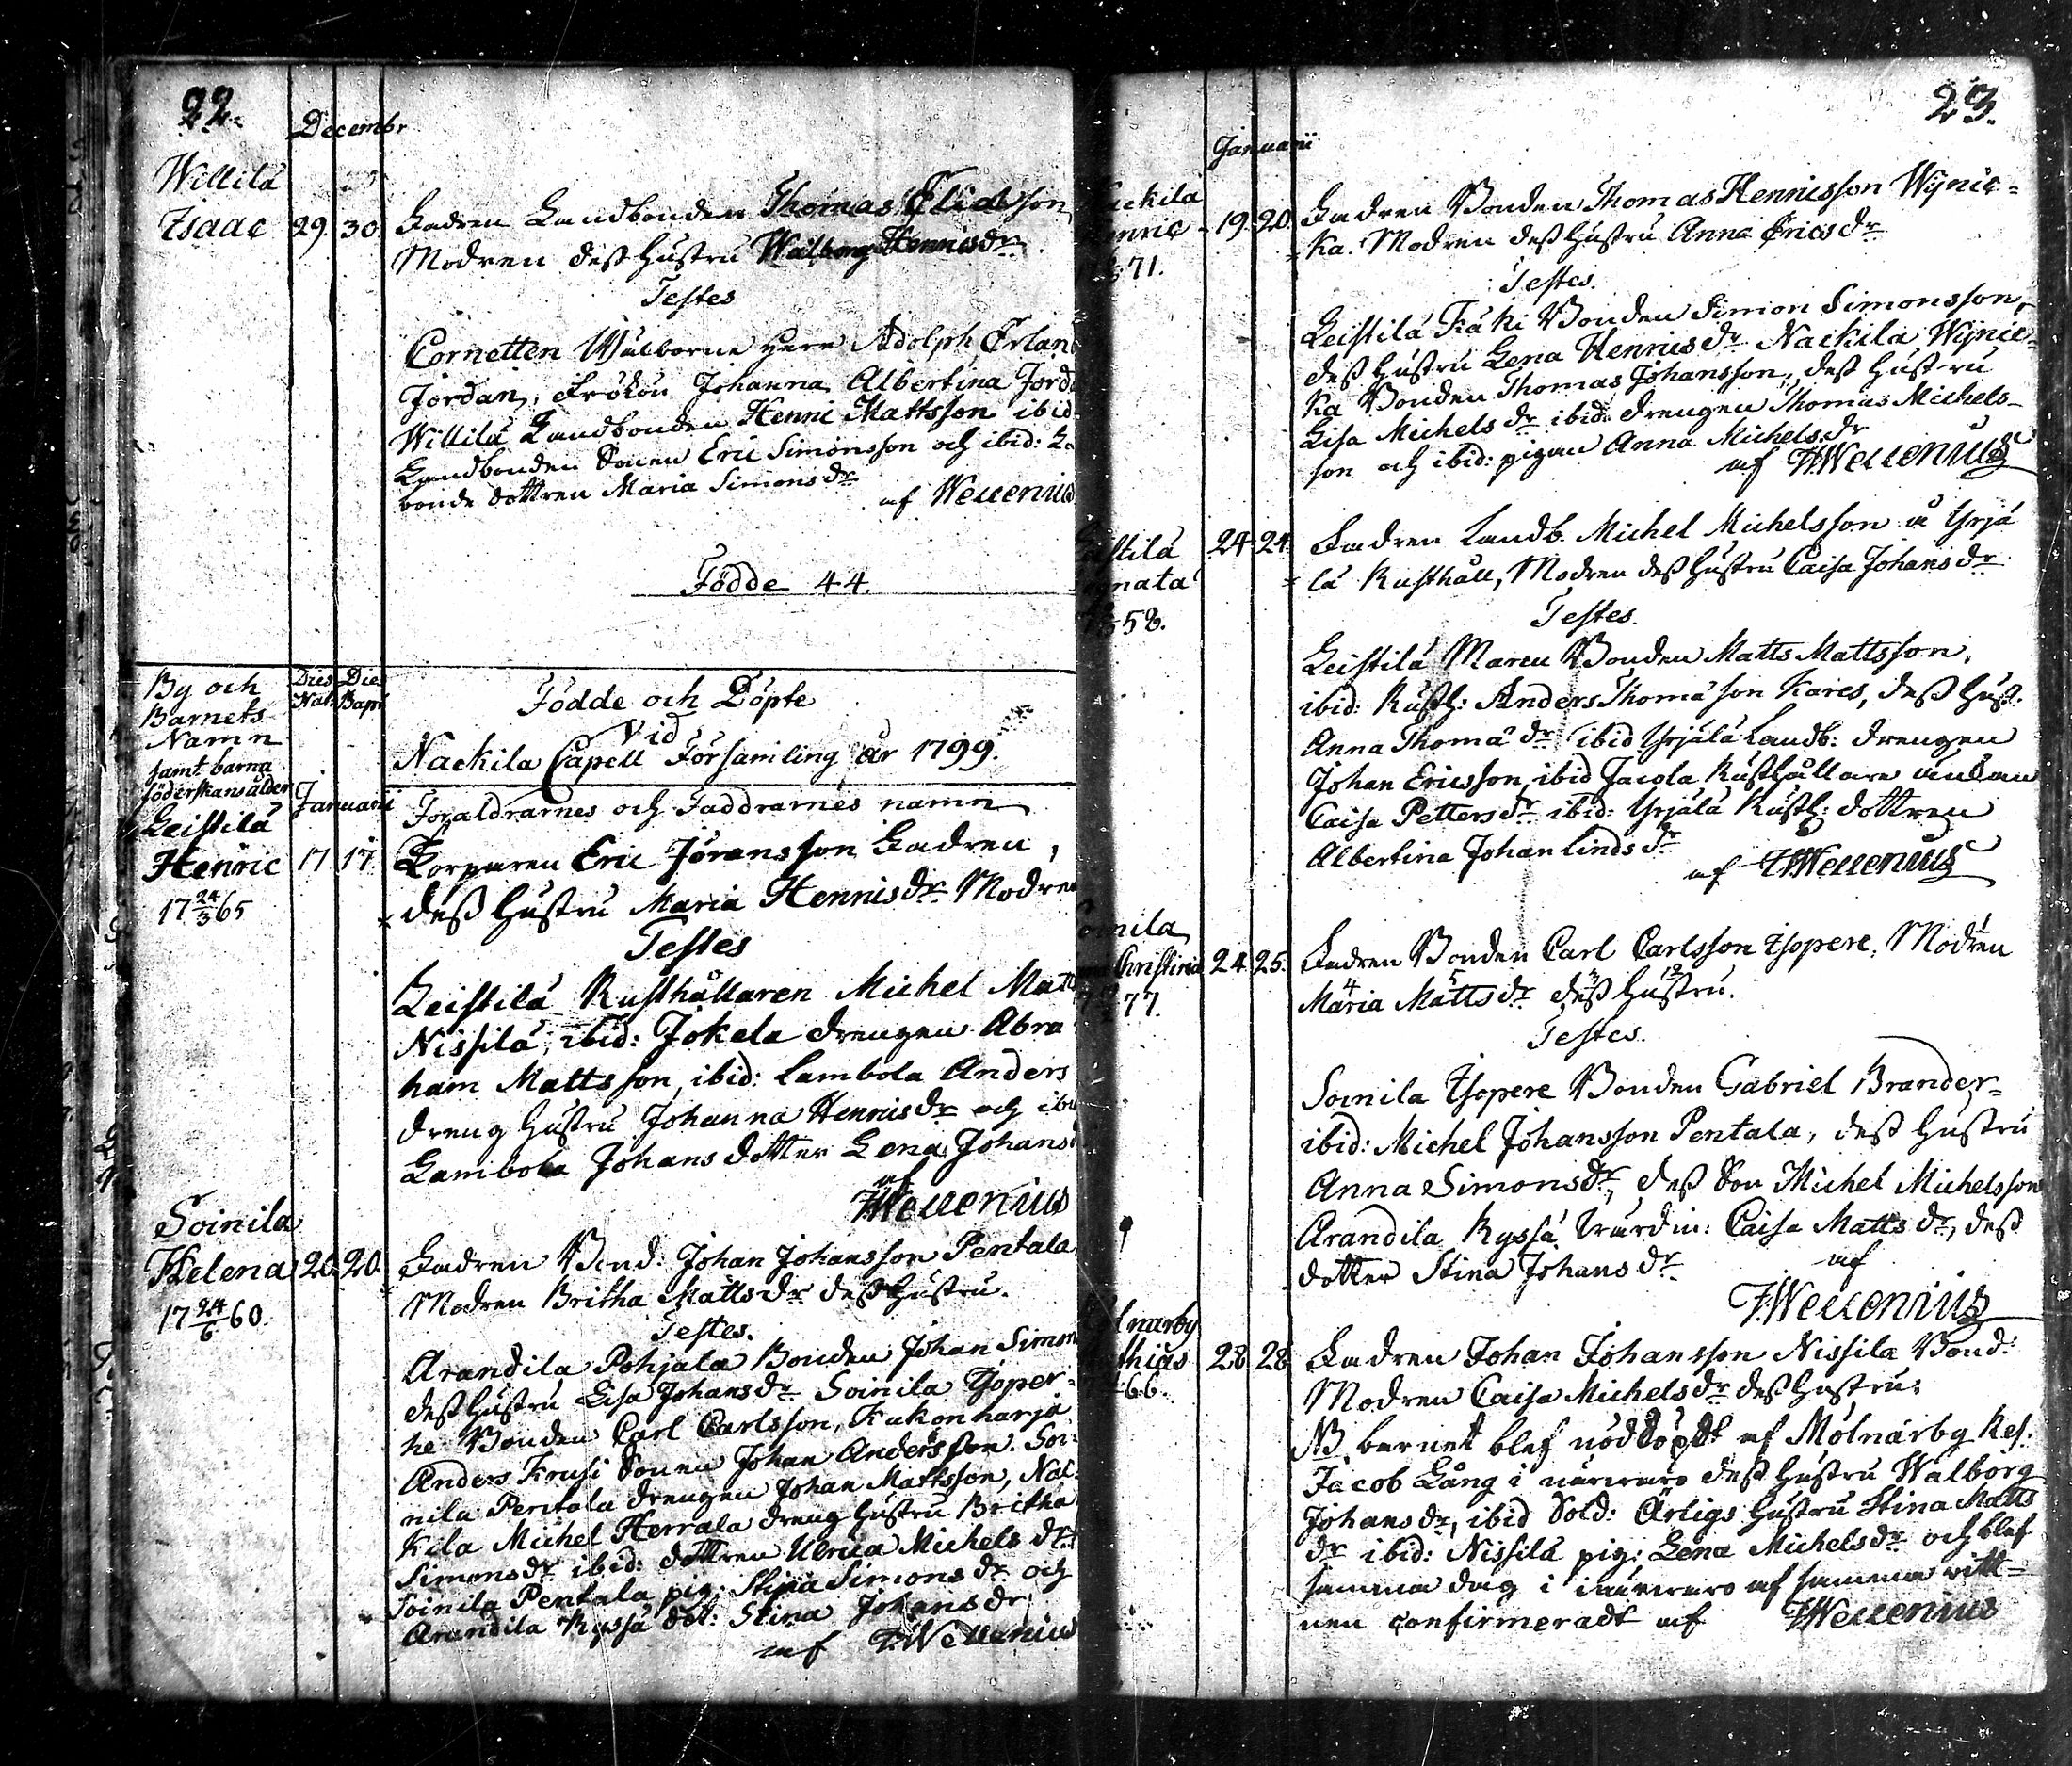 22.
Decembr
Willilä
Isaac 29. 30. Fadren Landbonden Thomas Eliasson
Modren dess hustru Walborg Henricsdr
Testes
Cornetten Wälborne Herr Adolph Erland
Jordan, Fröken Johanna Albertina Jord
Willilä Landbonden Henric Mattsson ibid
Landbonden Sonen Eric Simonsson och ibid: La
bonde dottren Maria Simonsdr
af Wellenius
Födde 44.
By och Barnets Namn samt barna föderskans ålder
Dies Nat. Dies Bapt.
Födde och Döpte
Vid
Nackila Capell Församling år 1799.
Januarii
Föräldrarnes och Faddrarnes namn
Leistilä
Henric 17 17. Torparen Eric Jöransson Fadren,
17 24/3 65 dess hustru Maria Henricsdr Modren
Testes
Leistilä Rusthållaren Michel Matts
Nissilä, ibid: Jokela drengen Abra
ham Mattsson, ibid: Lambola Anders
dreng hustru Johanna Henricsdr och ibid
Lambola Johans dotter Lena Johans
af
FWellenius
Soinila
Helena 20. 20. Fadren Bond: Johan Johansson Pentala
17 24/6 60. Modren Britha Mattsdr dess hustru.
Testes.
Arandila Pohjala Bonden Johan Simon
dess hustru Lisa Johansdr Soinila Isoper-
he Bonden Carl Carlsson, Kukonharja
Anders Krusi Sonen Johan Andersson. Soi-
nila Pentala drengen Johan Mattsson, Nac-
kila Michel Herrala dreng hustru Britha
Simonsdr ibid: dottren Ulrica Michelsdr
Soinila Pentala pig: Stina Simonsdr och
Arandila Ryssä dot: Stina Johansdr
af FWellenius
23.
Januarii
ackila
enric 19. 20. Fadren Bonden Thomas Henricsson Wynic-
71. ka. Modren dess hustru Anna Ericsdr
Testes.
Leistilä Käki Bonden Simon Simonsson,
dess hustru Lena Henricsdr Nackila Wynic-
ka Bonden Thomas Johansson, dess hustru
Lisa Michelsdr ibid: drengen Thomas Michels-
son och ibid: pigan Anna Michelsdr
af FWellenius
istilä 24. 24. Fadren Landb. Michel Michelsson å Yrjä
nata lä Rusthåll, Modren dess hustru Caisa Johansdr
58.
Testes.
Leistilä Maren Bonden Matts Mattsson,
ibid: Rusth: Anders Thomasson Kares, dess hust:
Anna Thomädr ibid Yrjälä Landb: drengen
Johan Ericsson, ibid Jacola Rusthållare änkan
Caisa Pettersdr ibid: Yrjälä Rusth: dottren
Albertina Johan Lindsdr
af FWellenius
oinila
Christina 24. 25. Fadren Bonden Carl Carlsson Isopere, Modren
77. Maria Mattsdr dess hustru.
Testes.
Soinila Isopere Bonden Gabriel Brander-
ibid: Michel Johansson Pentala, dess hustru
Anna Simonsdr, dess Son Michel Michelsson
Arandila Ryssä Wärdin: Caisa Mattsdr, dess
dotter Stina Johansdr.
af
FWellenius
lnarby
thias 28 28 Fadren Johan Johansson Nissilä Bond:
66. Modren Caisa Michelsdr dess hustru:
NB barnet blef nöddöpdt af Mölnärby Res:
Jacob Lång i närwaro dess hustru Walborg
Johansdr, ibid Sold: Ärligs hustru Stina Matts
dr ibid: Nissilä pig: Lena Michelsdr och blef
samma dag i närwaro af samma witt-
nen confirmeradt af FWellenius